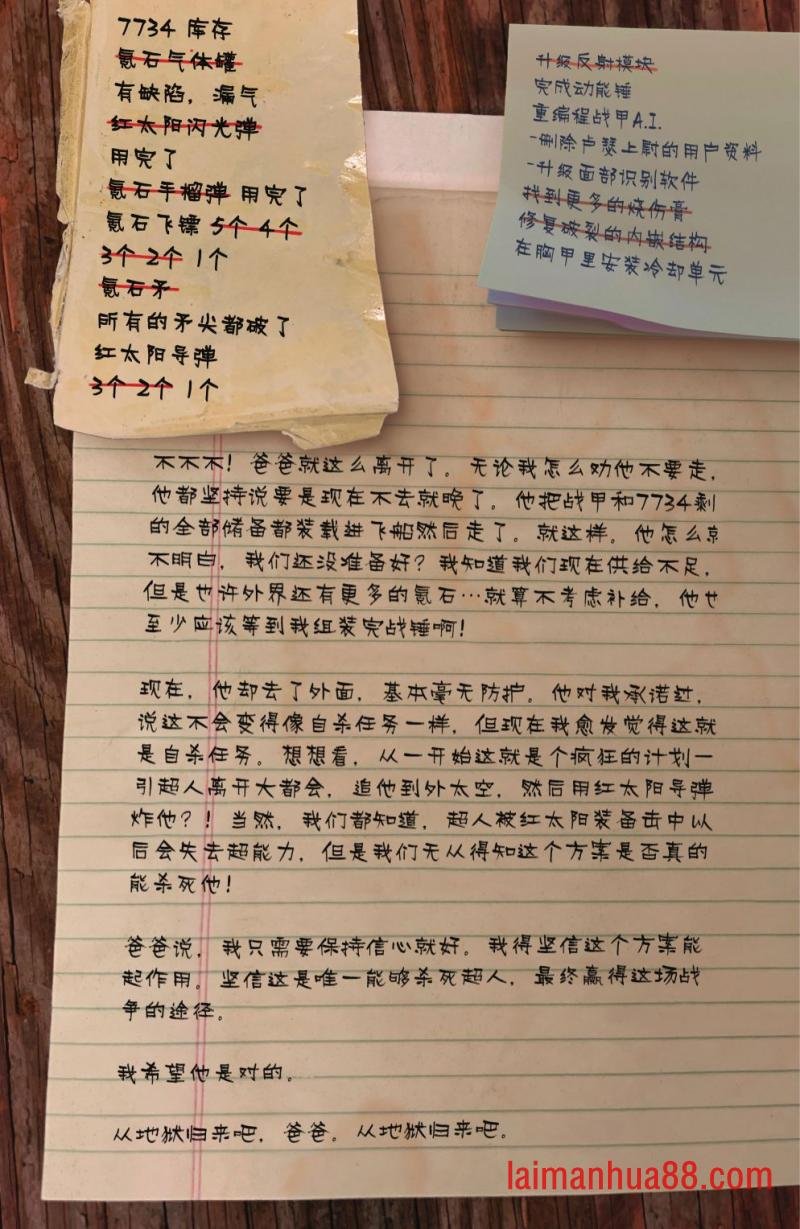 7734 库存
氪石气体罐
有缺陷，漏气
红太阳闪光弹
用完了
氪石手榴弹 用完了
氪石飞镖 5个 4个
3个 2个 1个
氪石矛
所有的矛尖都破了
红太阳导弹
3个 2个 1个
升级反射模块
完成动能锤
重编程战甲A.I.
-删除卢瑟上尉的用户资料
-升级面部识别软件
找到更多的烧伤膏
修复破裂的内嵌结构
在胸甲里安装冷却单元
不不不！爸爸就这么离开了。无论我怎么劝他不要走，
他都坚持说要是现在不去就晚了。他把战甲和7734剩
的全部储备都装载进飞船然后走了。就这样。他怎么
不明白，我们还没准备好？我知道我们现在供给不足，
但是也许外界还有更多的氪石…就算不考虑补给，他也
至少应该等到我组装完战锤啊！
现在，他却去了外面，基本毫无防护。他对我承诺过，
说这不会变得像自杀任务一样，但现在我愈发觉得这就
是自杀任务。想想看，从一开始这就是个疯狂的计划—
引超人离开大都会，追他到外太空，然后用红太阳导弹
炸他？！当然，我们都知道，超人被红太阳装备击中以
后会失去超能力，但是我们无从得知这个方案是否真的
能杀死他！
爸爸说，我只需要保持信心就好。我得坚信这个方案能
起作用。坚信这是唯一能够杀死超人，最终赢得这场战
争的途径。
我希望他是对的。
从地狱归来吧，爸爸。从地狱归来吧。
laimanhua88.com